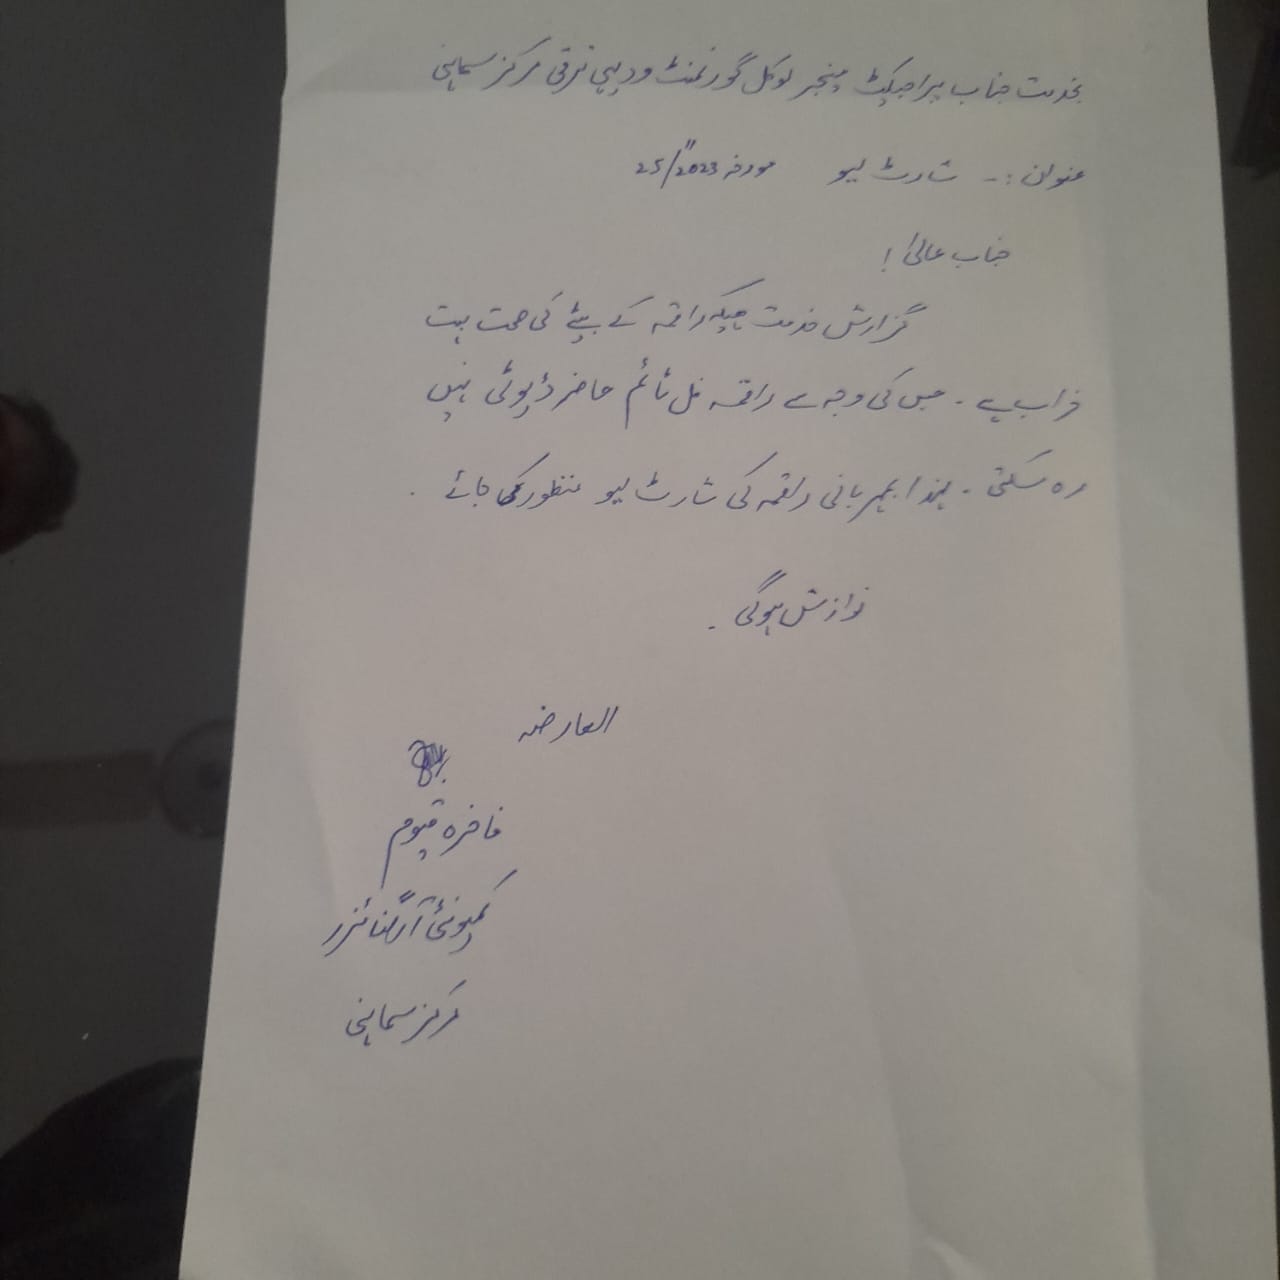 بخدمت جناب پراجیکٹ مینجر لوکل گورنمنٹ و دیہی ترقی مرکز سماہنی
عنوان :۔ شارٹ لیو مورخہ 25/11/2023
جناب عالیٰ !
گزارش خدمت ہیکہ راقمہ کے بیٹے کی صحت بہت
خراب ہے ۔ جس کی وجہ سے راقمہ فل ٹائم حاضر ڈیوٹی نہیں
رہ سکتی ۔ لہذا بمہربانی راقمہ کی شارٹ لیو منظور کی جائے ۔
نوازش ہوگی ۔
العارضہ
فاخرہ قیوم
کمیونٹی آرگنائزر
مرکز سماہنی